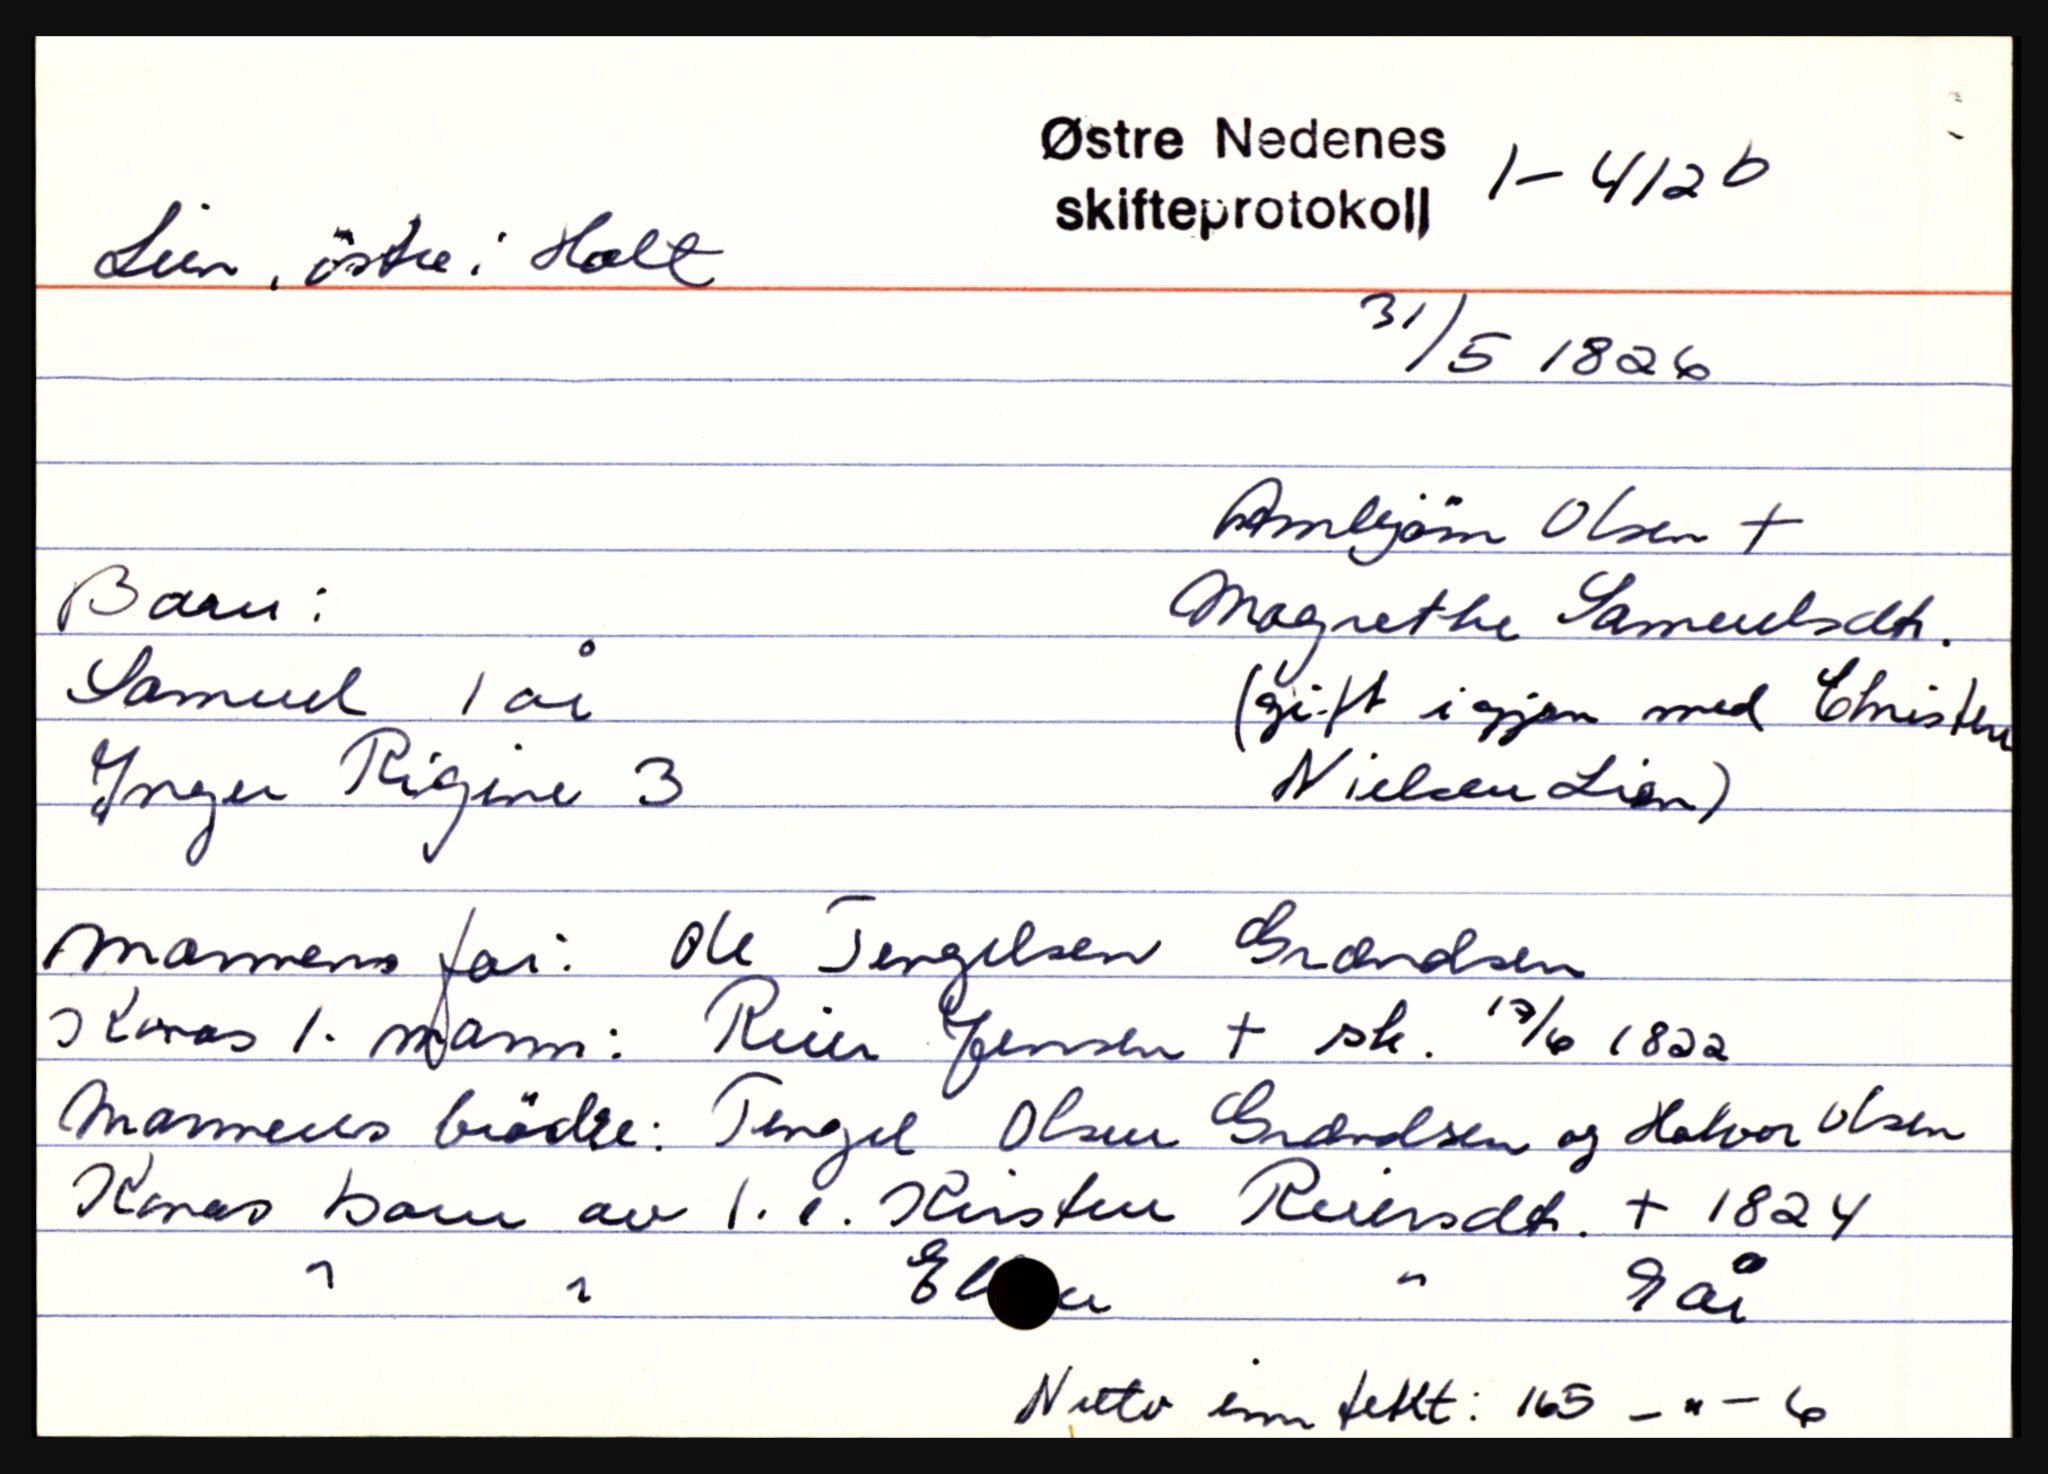 Østre Nedenes
skifteprotokoll 1-412b
Lien, östre i Holt
31/5 1826
Arnbjörn Olsen +
Barn:
Magrethe Samuelsdtr.
Samuel 1 år
(gift igjen med Christen
Inger Rigine 3
Nielsen Lien)
Mannens far: Ole Tengelsen Grændsen
Konas 1. mann: Reier Jensen + sk. 17/6 1822
Mannens brödre: Tengel Olsen Grændsen og Halvor Olsen
Konas barn av 1. e. Kirsten Reiersdtr. + 1824
" " " 9 år
Netto inntekt: 165 - " - 6